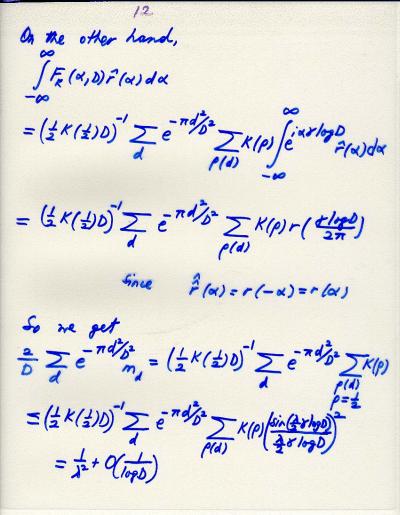 12
On the other hand,
∫_{-∞}^{∞} F_K(α,D) r̂(α) dα
= (½ K(½) D)^{-1} ∑_d e^{-πd²/D²} ∑_{ρ(d)} K(ρ) ∫_{-∞}^{∞} e^{iαγ log D} r̂(α) dα
= (½ K(½) D)^{-1} ∑_d e^{-πd²/D²} ∑_{ρ(d)} K(ρ) r(γ log D / 2π)
since r̂̂(α) = r(-α) = r(α)
So we get
2/D ∑_d e^{-πd²/D²} m_d = (½ K(½) D)^{-1} ∑_d e^{-πd²/D²} ∑_{ρ(d), ρ=½} K(ρ)
≤ (½ K(½) D)^{-1} ∑_d e^{-πd²/D²} ∑_{ρ(d)} K(ρ) (sin(λ/2 γ log D) / (λ/2 γ log D))²
= 1/λ² + O(1/log D)